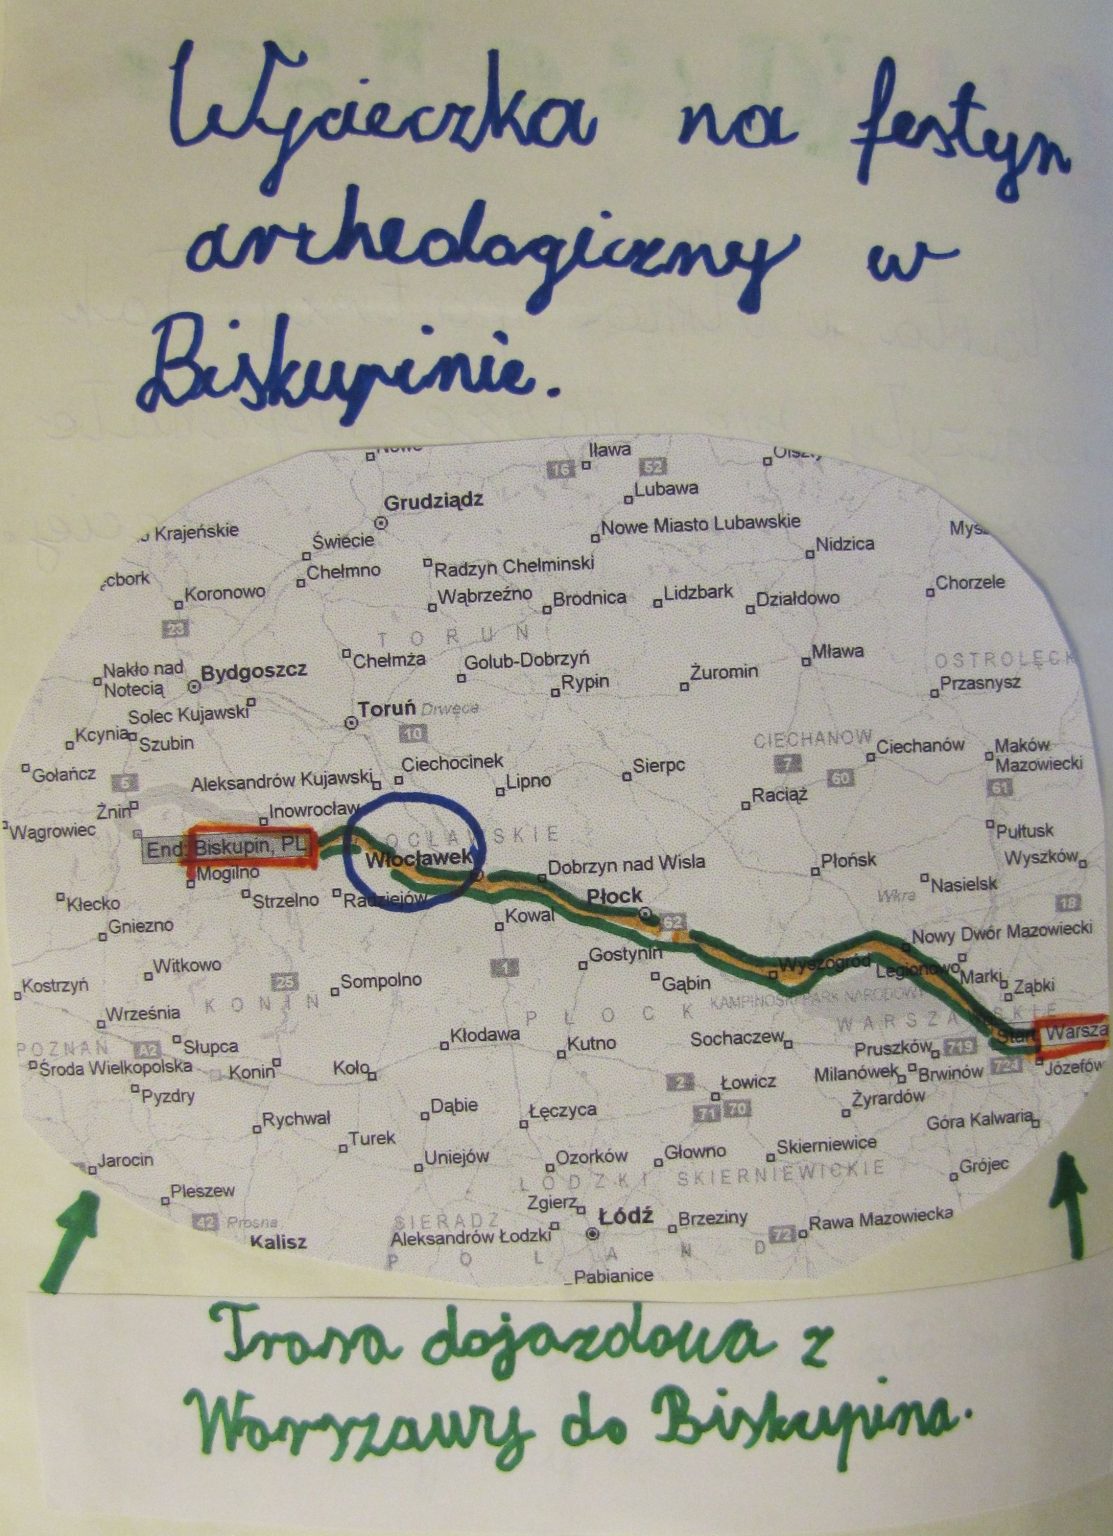 Wycieczka na festyn
archeologiczny w
Biskupinie.
Iława
16
52
Lubawa
Grudziądz
Nowe Miasto Lubawskie
Krajeńskie
Świecie
Nidzica
Chełmno
Radzyn Chełminski
Koronowo
Wąbrzeźno
Brodnica
Lidzbark
Działdowo
Chorzele
23
TORUŃ
Chełmża
Golub-Dobrzyń
Żuromin
Mława
OSTROŁĘCK
Nakło nad
Notecią
Bydgoszcz
Rypin
Przasnysz
Solec Kujawski
Toruń
Drwęca
Kcynia
Szubin
10
CIECHANOW
Ciechanów
Maków
Mazowiecki
Gołańcz
5
Aleksandrów Kujawski
Ciechocinek
Lipno
Sierpc
7
60
61
Żnin
Inowrocław
Raciąż
Wągrowiec
OCŁAWSKIE
Pułtusk
End: Biskupin, PL
Włocławek
Dobrzyn nad Wisla
Płońsk
Wyszków
Mogilno
Strzelno
Radziejów
Płock
Wkra
Nasielsk
Kłecko
Kowal
62
18
Gniezno
Nowy Dwór Mazowiecki
Witkowo
1
Gostynin
Wyszogród
Legionowo
Marki
Ząbki
Kostrzyń
25
Sompolno
Gąbin
KAMPINOSKI PARK NARODOWY
KONIN
Września
PŁOCK
WARSZAWSKIE
Start: Warsza
POZNAŃ
A2
Słupca
Kłodawa
Kutno
Sochaczew
Pruszków
719
Środa Wielkopolska
Konin
Koło
Milanówek
Brwinów
724
Józefów
Pyzdry
2
Łowicz
Rychwał
Dąbie
Łęczyca
71
70
Żyrardów
Góra Kalwaria
Turek
Jarocin
Uniejów
Ozorków
Głowno
Skierniewice
Grójec
ŁÓDZKI
SKIERNIEWICKIE
Pleszew
Zgierz
42
Prosna
SIERADZ
Łódź
Brzeziny
Rawa Mazowiecka
Kalisz
Aleksandrów Łodzki
72
POLAND
Pabianice
Trasa dojazdowa z
Warszawy do Biskupina.